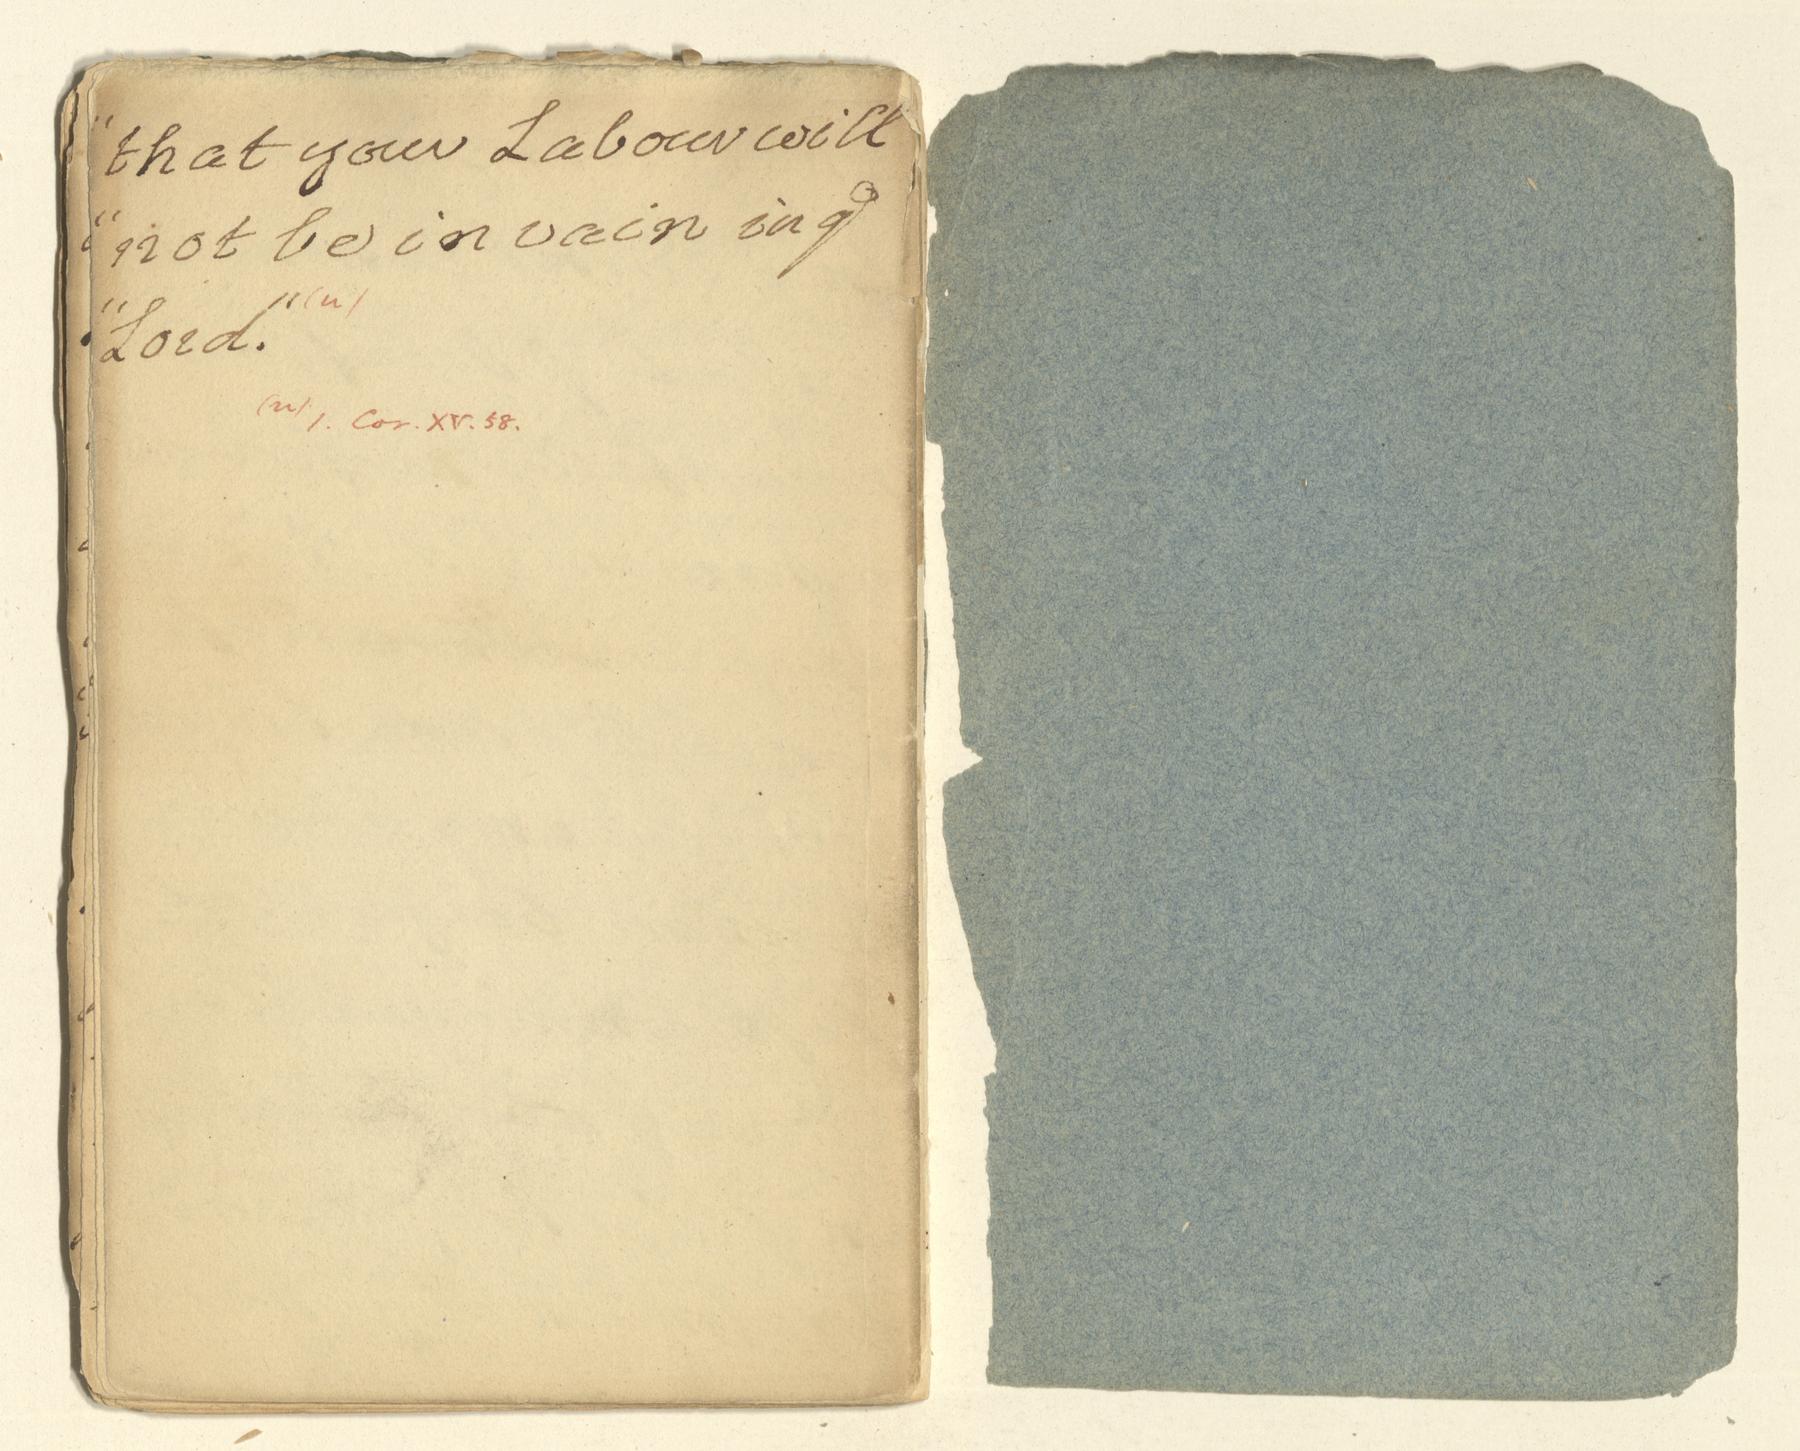 "that your Labour will
"not be in vain in yᵉ
"Lord."(n)
(n) 1. Cor. XV. 58.